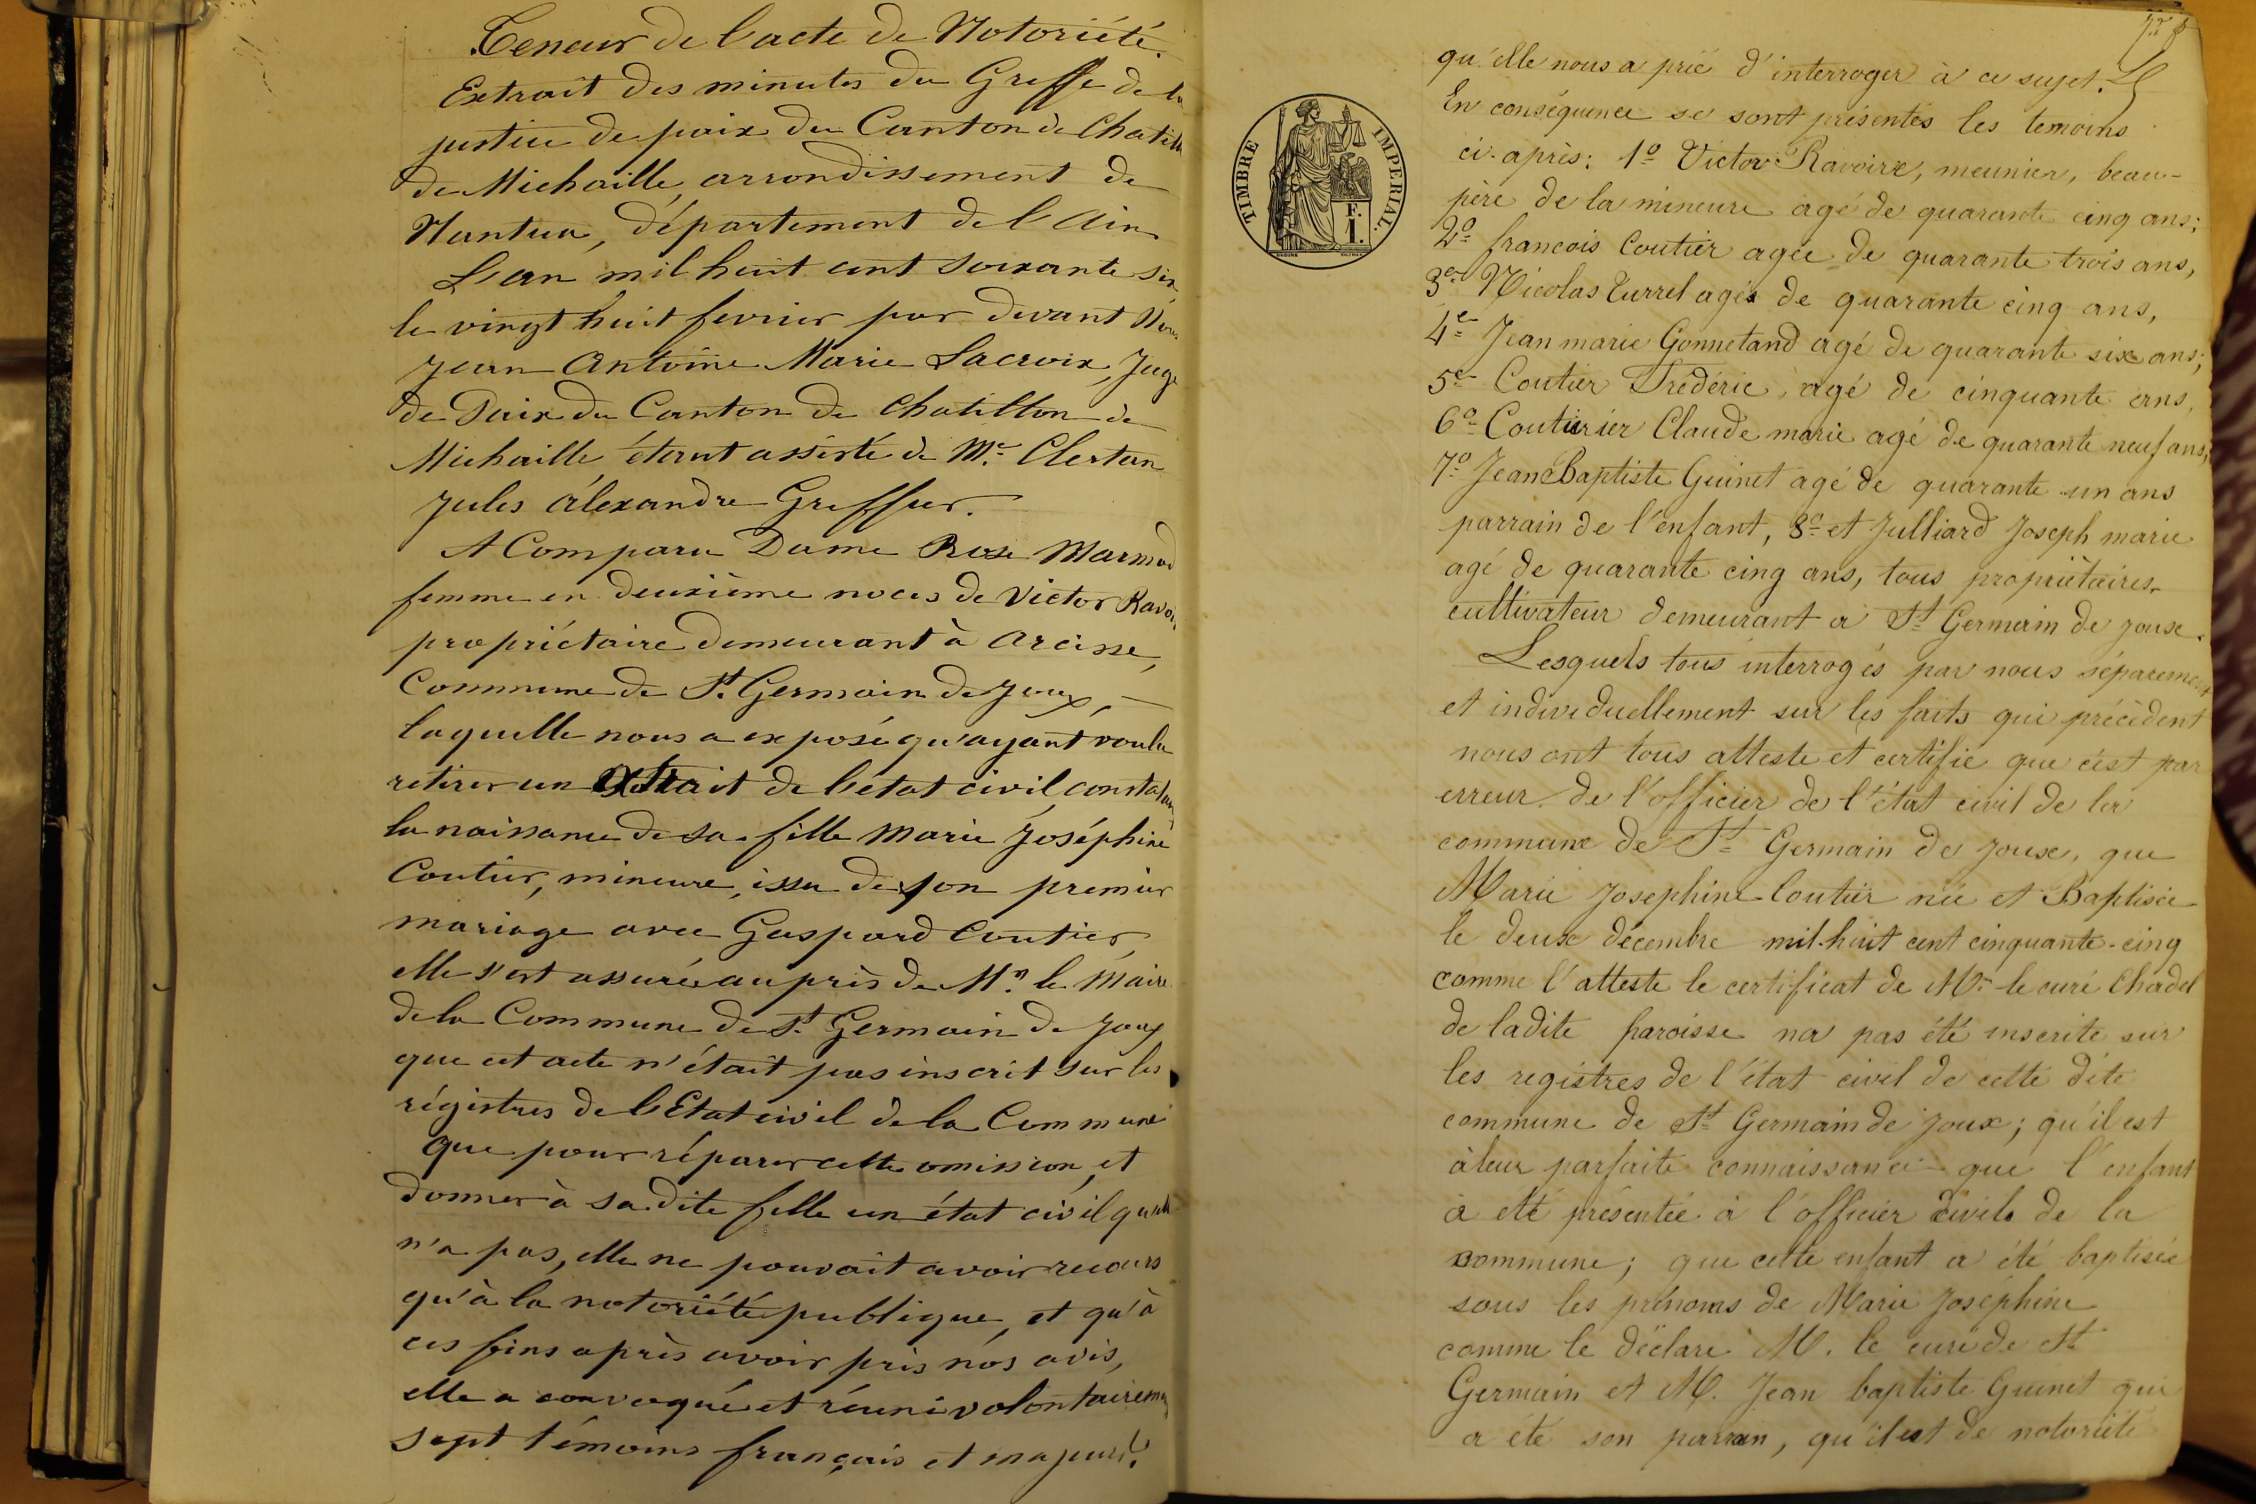 Teneur de l'acte de Notoriété.
Extrait des minutes du Greffe de la
justice de paix du Canton de Chatill
de Michaille, arrondissement de
Nantua, département de l'Ain
L'an mil huit cent soixante six
le vingt huit fevrier par devant Nous
Jean Antoine Marie Lacroix, Juge
de Paix du Canton de Chatillon de
Michaille étant assisté de Me. Clertan
Jules Aléxandre Greffier.
A Comparu Dame Rose Marmod
femme en deuxième noces de Victor Ravoi
propriétaire demeurant à Arcisse,
Commune de St. Germain de Joux,
laquelle nous a exposé qu'ayant voulu
retirer un extrait de l'état civil, constatant
la naissance de sa fille Marie Joséphine
Coutier, mineure, issu de son premier
mariage avec Gaspard Coutier,
elle s'est assurée auprès de Mr. le Maire
de la Commune de St. Germain de Joux
que cet acte n'était pas inscrit sur les
régistres de l'Etat civil de la Commune
que pour réparer cette omission, et
donner à sa dite fille un état civil qu'elle
n'a pas, elle ne pouvait avoir recours
qu'à la notoriété publique, et qu'à
ces fins après avoir pris nos avis,
elle a convoqué et réuni volontairement
sept témoins français et majeurs
qu'elle nous a prié d'interroger à ce sujet.
En conséquence se sont présentés les temoins
ci-après: 1o Victor Ravoire, meunier, beau-
père de la mineure agé de quarante cinq ans;
2o francois Coutier agée de quarante trois ans,
3o Nicolas Turrel agés de quarante cinq ans,
4e Jean marie Gonnetand agé de quarante six ans;
5e Coutier Frédéric, agé de cinquante ans,
6o Couturier Claude marie agé de quarante neuf ans,
7o Jean Baptiste Guinet agé de quarante un ans
parrain de l'enfant, 8o et Julliard Joseph marie
agé de quarante cinq ans, tous propriétaires
cultivateur demeurant a St Germain de joux.
Lesquels tous interrogés par nous séparement
et individuellement sur les faits qui précèdent
nous ont tous atteste et certifié que c'est par
erreur de l'officier de l'état civil de la
commune de St Germain de joux, que
Marie Josephine Coutier née et Baptisée
le deux décembre mil-huit cent cinquante-cinq
comme l'atteste le certificat de Mr. le curé Chadel
de ladite paroisse na pas été inscrite sur
les registres de l'état civil de cette dite
commune de St Germain de joux; qu'il est
à leur parfaite connaissance que l'enfant
à eté présentée à l'officier civil de la
commune; que cette enfant a été baptisée
sous les prénoms de Marie Joséphine
comme le déclare M. le curé de St
Germain et M. Jean baptiste Guinet qui
a été son parrain, qu'il est de notoriété
TIMBRE IMPERIAL.
F.
1.